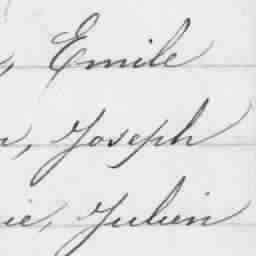 , Emile
r, Joseph
ie, Julien